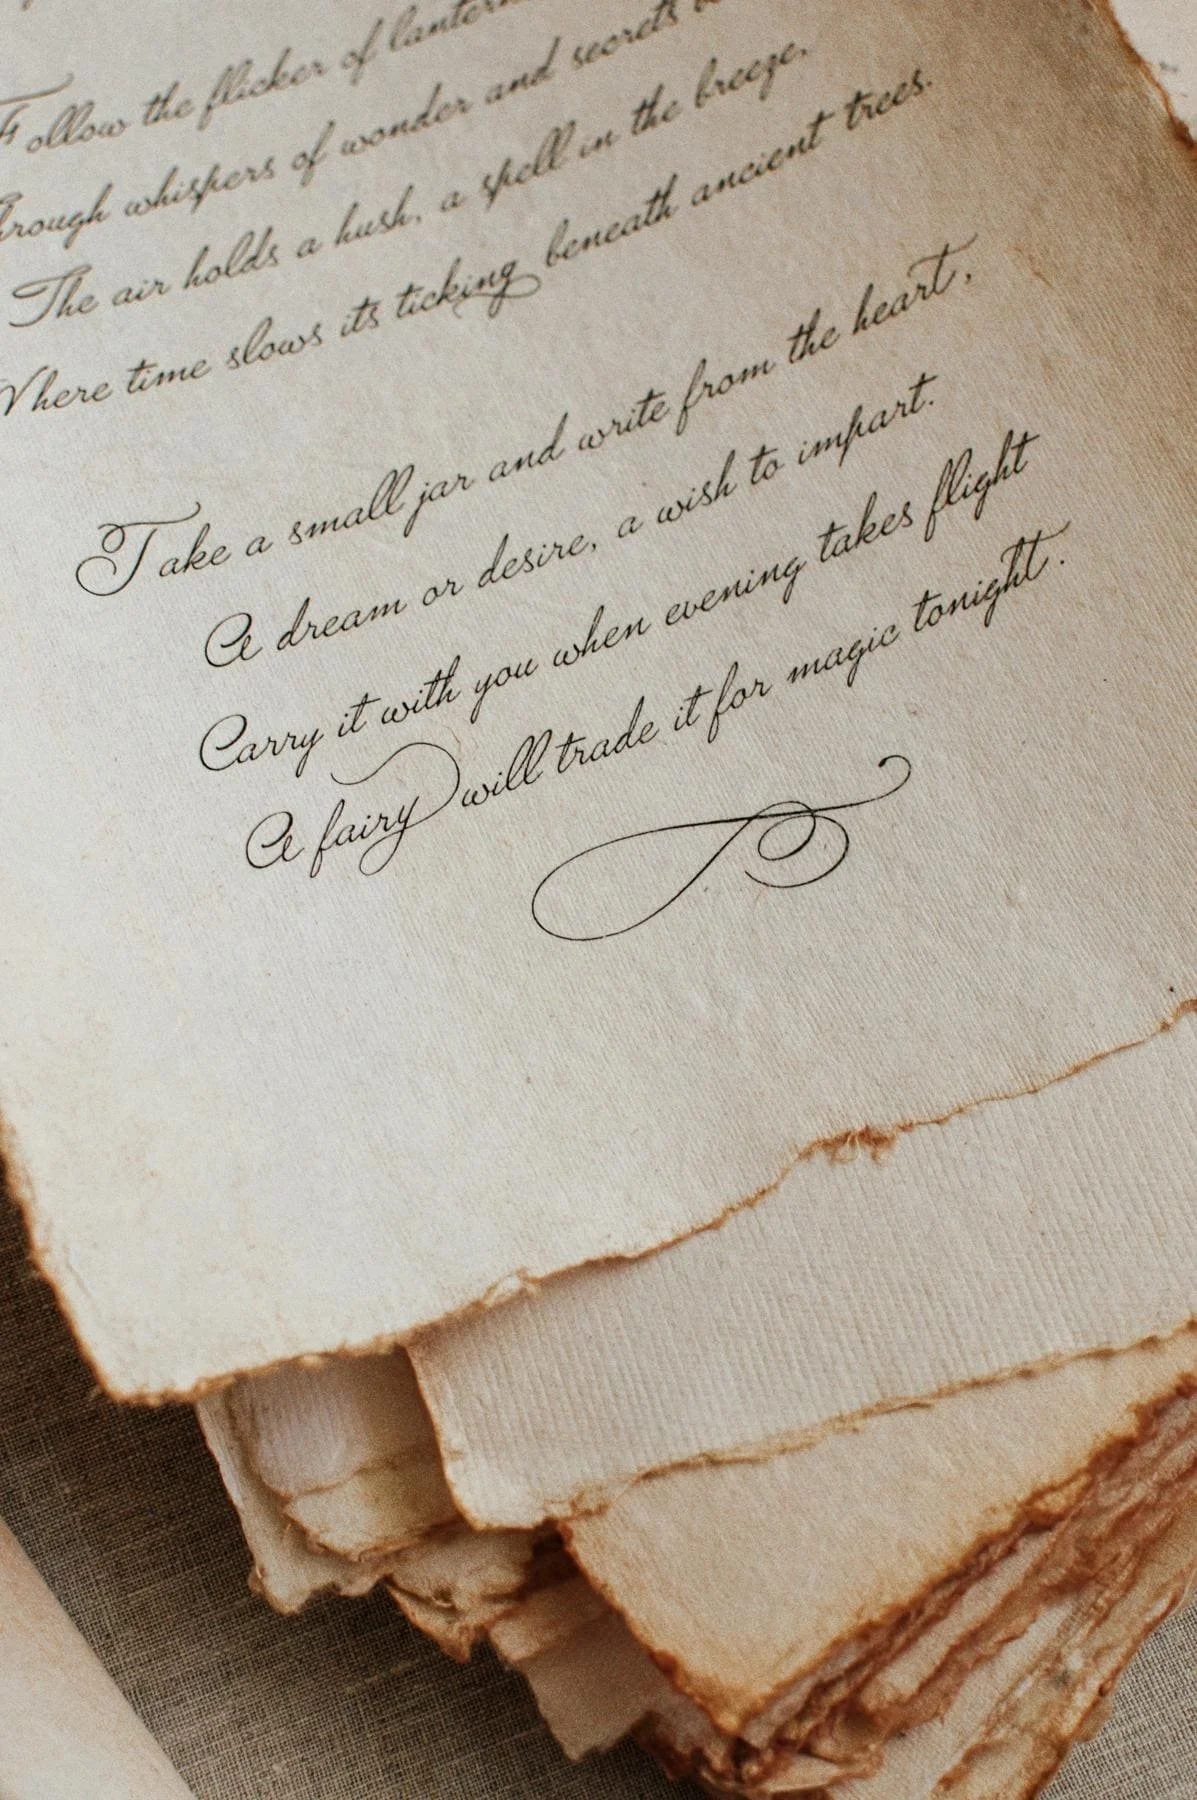 Follow the flicker of
whispers of wonder and secrets
The air holds a hush, a spell in the breeze,
Where time slows its ticking beneath ancient trees.
Take a small jar and write from the heart,
A dream or desire, a wish to impart.
Carry it with you when evening takes flight
A fairy will trade it for magic tonight.